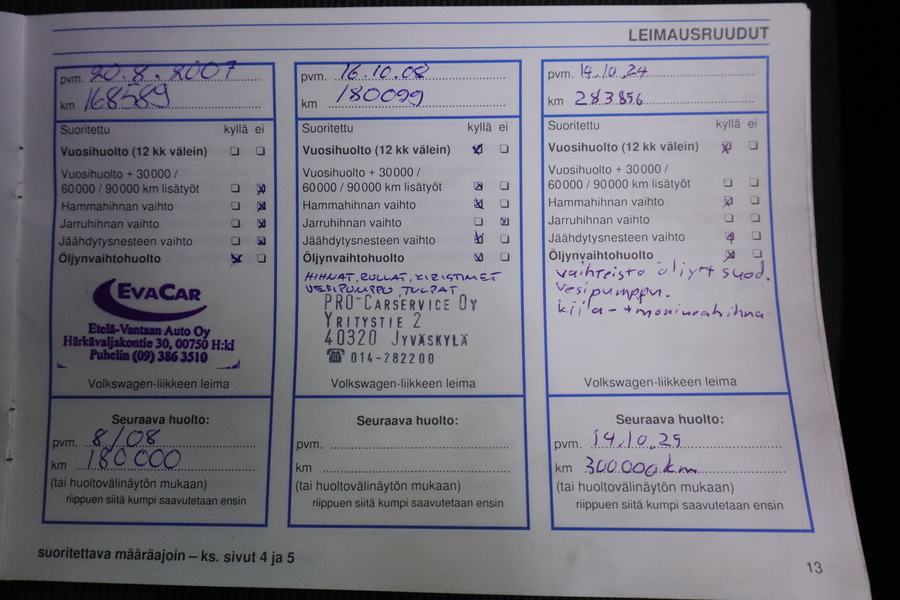 LEIMAUSRUUDUT
pvm. 20.8.2007
km 168589
Suoritettu kyllä ei
Vuosihuolto (12 kk välein)
Vuosihuolto + 30 000 /
60 000 / 90 000 km lisätyöt
Hammahihnan vaihto
Jarruhihnan vaihto
Jäähdytysnesteen vaihto
Öljynvaihtohuolto
EVACAR
Etelä-Vantaan Auto Oy
Härkävaljakontie 30, 00750 H:ki
Puhelin (09) 386 3510
Volkswagen-liikkeen leima
Seuraava huolto:
pvm. 8/08
km 180000
(tai huoltovälinäytön mukaan)
riippuen siitä kumpi saavutetaan ensin
pvm. 16.10.08
km 180099
Suoritettu kyllä ei
Vuosihuolto (12 kk välein)
Vuosihuolto + 30 000 /
60 000 / 90 000 km lisätyöt
Hammahihnan vaihto
Jarruhihnan vaihto
Jäähdytysnesteen vaihto
Öljynvaihtohuolto
HIHNAT, RULLAT, KIRISTIMET
VESIPUMPPU, TULPAT
PRO-CARSERVICE OY
YRITYSTIE 2
40320 JYVÄSKYLÄ
☎ 014-282200
Volkswagen-liikkeen leima
Seuraava huolto:
pvm.
km
(tai huoltovälinäytön mukaan)
riippuen siitä kumpi saavutetaan ensin
pvm. 14.10.24
km 283856
Suoritettu kyllä ei
Vuosihuolto (12 kk välein)
Vuosihuolto + 30 000 /
60 000 / 90 000 km lisätyöt
Hammahihnan vaihto
Jarruhihnan vaihto
Jäähdytysnesteen vaihto
Öljynvaihtohuolto
vaihteisto öljyt+suod.
vesipumppu.
kiila-+moniurahihna
Volkswagen-liikkeen leima
Seuraava huolto:
pvm. 14.10.25
km 300.000km
(tai huoltovälinäytön mukaan)
riippuen siitä kumpi saavutetaan ensin
suoritettava määräajoin – ks. sivut 4 ja 5
13